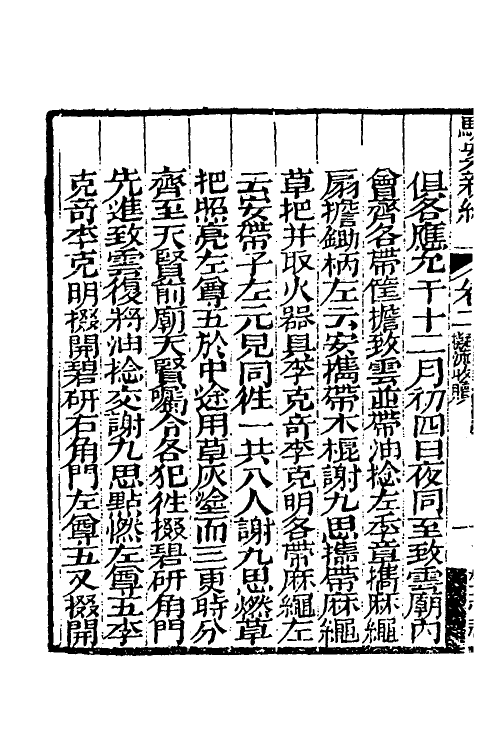 駁案新編
卷二
俱各應允于十二月初四日夜同至致雲廟內
會齊各帶筐擔致雲並帶油捻左奉章攜麻繩
扇擔鋤柄左云安攜帶木棍謝九思攜帶麻繩
草把并取火器具李克奇李克明各帶麻繩左
云安帶子左元見同徃一共八人謝九思燃草
把照亮左尊五於中途用草灰塗面三更時分
齊至天賢前廟天賢囑令各犯徃掇碧研角門
先進致雲復將油捻交謝九思點燃左尊五李
克奇李克明掇開碧研右角門左尊五又掇開